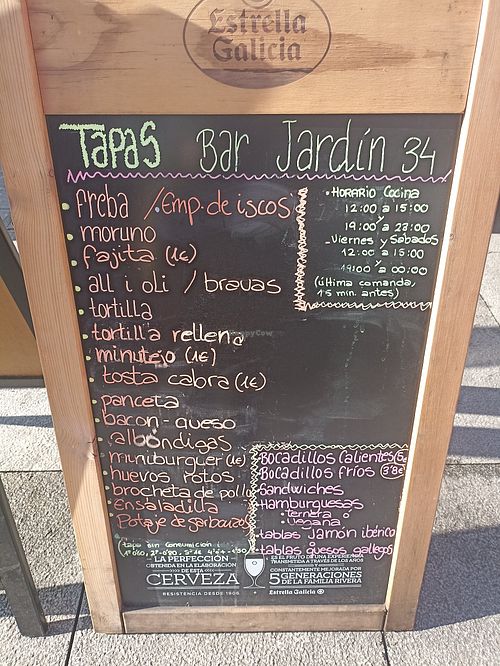 Estrella
Galicia
TapaS Bar Jardín 34
freba / Emp. de iscos
moruno
fajita (1€)
all i oli / bravas
tortilla
tortilla rellena
minutejo (1€)
tosta cabra (1€)
panceta
bacon-queso
albóndigas
muniburguer (1€)
huevos rotos
brocheta de pollo
Ensaladilla
Potaje de garbanzos
(tapa sin consumición:
HORARIO Cocina
12:00 a 15:00
y
19:00 a 23:00
Viernes y Sábados
12:00 a 15:00
y
19:00 a 00:00
(última comanda,
15 min. antes)
Bocadillos Calientes
Bocadillos fríos 3'8€
Sandwiches
Hamburguesas
• ternera o
• vegana
tablas Jamón ibérico
tablas quesos gallegos
LA PERFECCIÓN
OBTENIDA EN LA ELABORACIÓN
DE ESTA
CERVEZA
RESISTENCIA DESDE 1906
ES EL FRUTO DE UNA EXPERIENCIA
TRANSMITIDA A TRAVÉS DE LOS AÑOS
CONSTANTEMENTE MEJORADA POR
5 GENERACIONES
DE LA FAMILIA RIVERA
Estrella Galicia